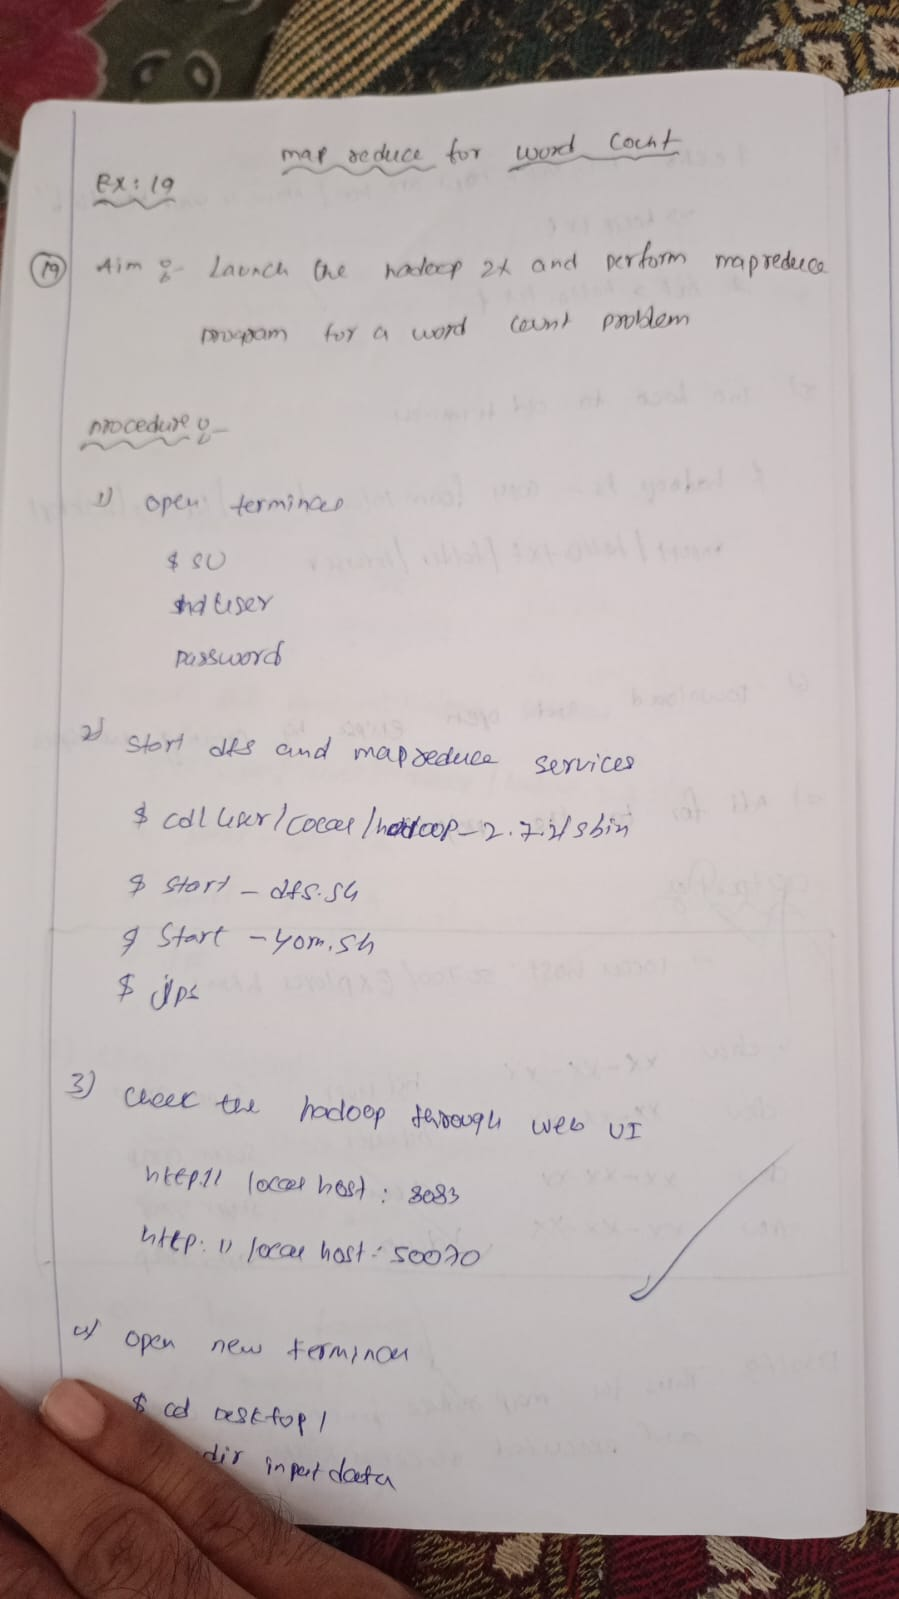 map reduce for word Count
Ex: 19
19 Aim :- Launch the hadoop 2x and perform mapreduce
program for a word count problem
procedure :-
1) open terminal
$ SU
hduser
password
2) Start dfs and mapreduce services
$ cd / user / local / hadoop - 2.7.2/sbin
$ start - dfs.sh
$ Start - yarn.sh
$ jps
3) check the hadoop through web UI
http:// local host : 8083
http: // local host : 50070
4) open new terminal
$ cd Desktop /
dir inputdata